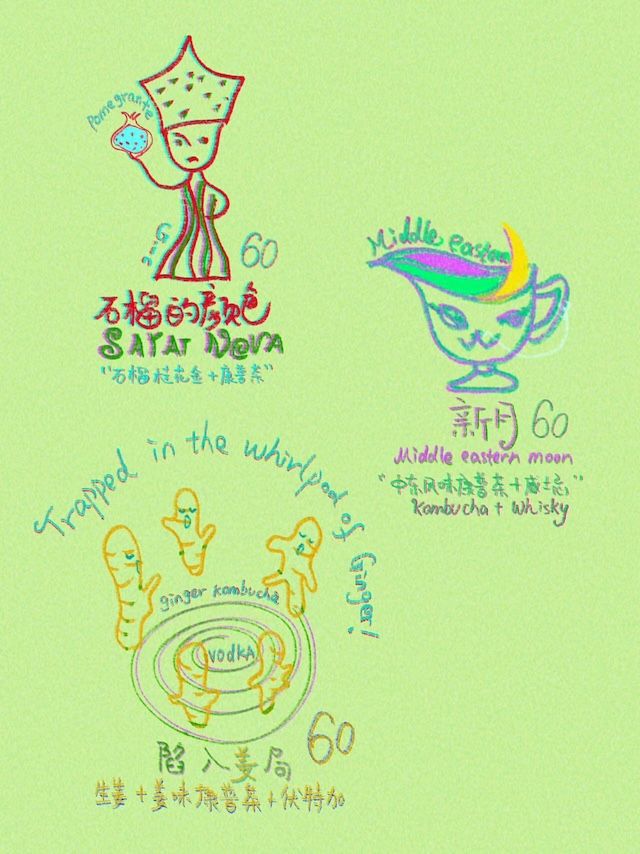 Pomegrante
Gin
60
石榴的颜色
SAYAT NOVA
"石榴桂花金+康普茶"
Middle eastern
新月 60
Middle eastern moon
"中东风味康普茶+威士忌"
Kombucha + Whisky
Trapped in the whirlpool of Ginger!
ginger kombucha
VODKA
60
陷入姜局
生姜+姜味康普茶+伏特加